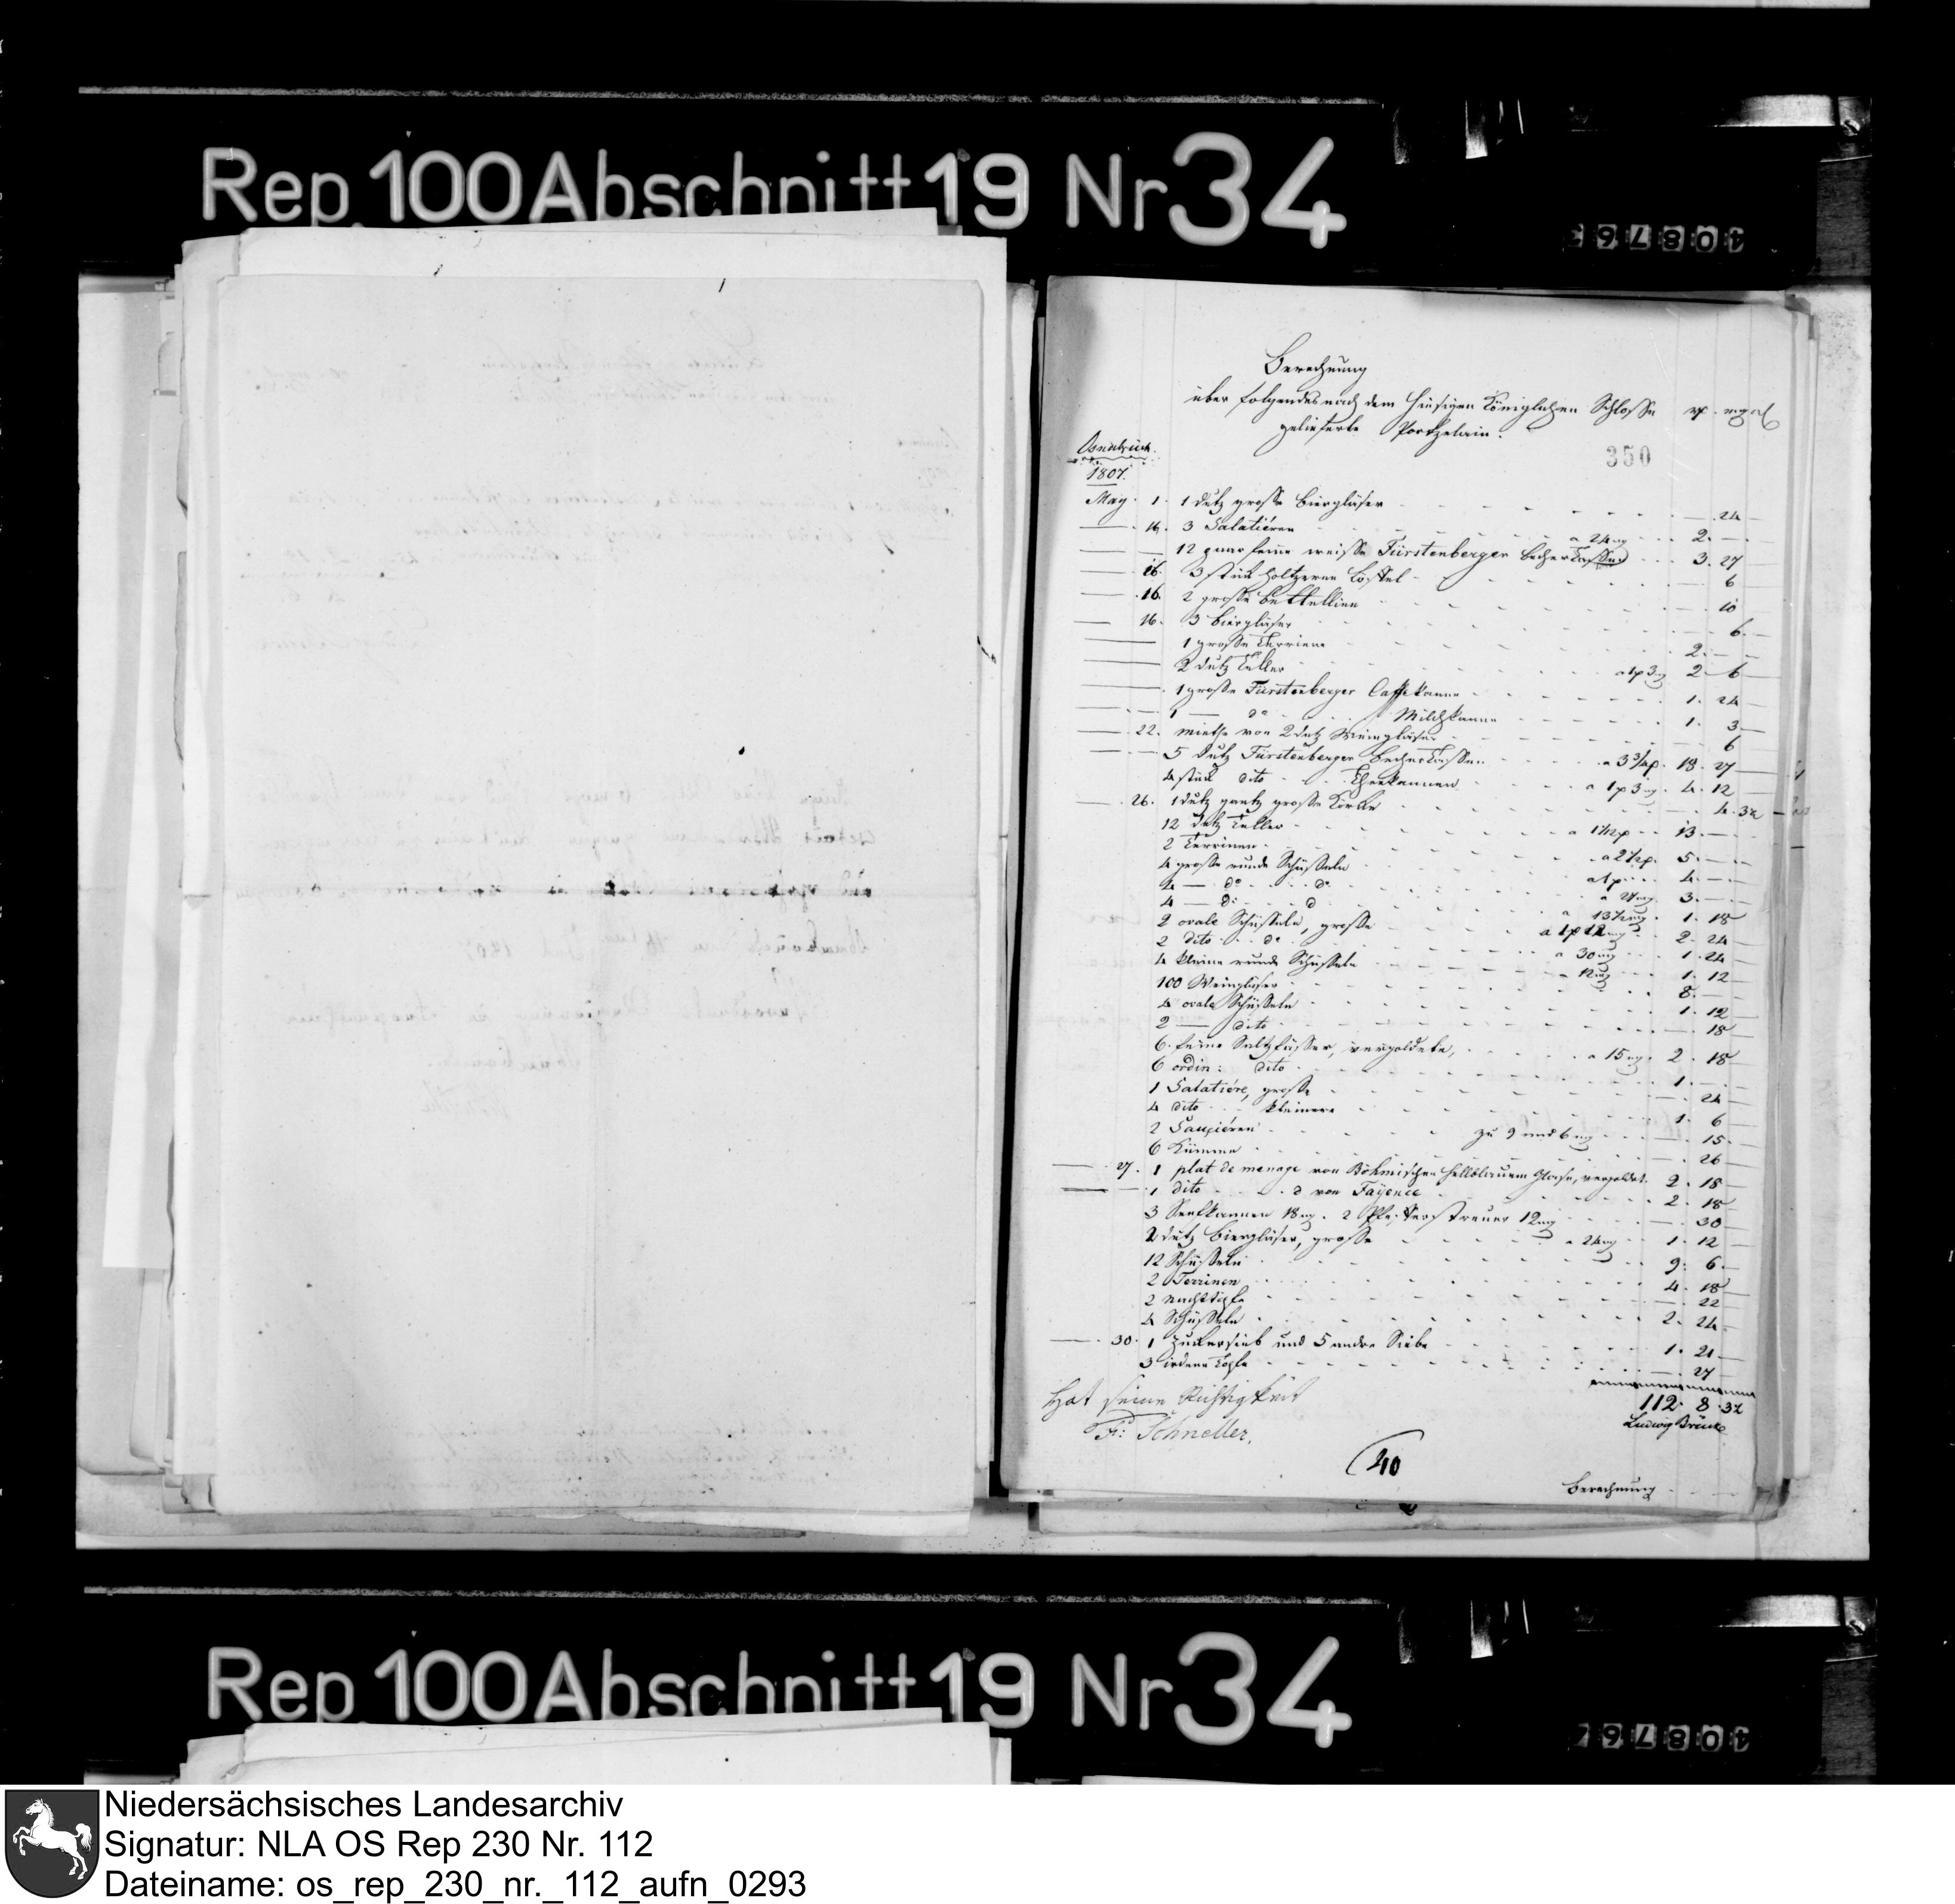 Rep. 100 Abschnitt 19 Nr 34
Berechnung
über folgendes nach dem hiesigen Königlichen Schlosse rp. mg d
gelieferte Portzelain.
350
Osnabrück
1807.
May. 1. 1 Dutz grosse Biergläser — 24 —
— 16. 3 Salatiéren a 24 mg 2. — —
— 12 paar feine weisse Fürstenberger Becher Tassen 3. 27
— 16. 3 stück holtzerne Löffel — 6
— 16. 2 grosse Buttellien — 10
— 16. 3 Biergläser — 6. —
— 1 grosse Terriene 2. — —
— 2 Dutz Teller a 1 rp 3 mg 2 6
— 1 grosse Fürstenberger Caffekanne 1. 24
— 1 — do Milchkanne 1. 3
— 22. miethe von 2 Dutz Weingläser — 6
— 5 Dutz Fürstenberger Becher Tassen a 3 3/4 rp. 18. 27
4 stück dito Theekannen a 1 rp 3 mg. 4. 12
— 26. 1 Dutz gantz grosse Körbe — 4. 32
12 Dutz Teller a 1 1/12 rp 13. — —
2 Terrinen a 2 1/2 rp. 5. — —
4 grosse runde Schüsseln a 1 rp 4. — —
4 — do do a 27 mg 3. — —
4 — do d a 13 1/2 mg 1. 18
2 ovale Schüsseln, grosse a 1 rp 12 mg 2. 24
2 dito do a 30 mg 1. 24
4 kleine runde Schüsseln a 12 mg 1. 12
100 Weingläser 8. — —
4 ovale Schüsseln 1. 12
2 — dito — 18
6. feine Saltzfässer, vergoldete, a 15 mg. 2. 18
6 ordin: dito 1. — —
1 Salatiére, grosse — 24
4 dito kleinere 1. 6
2 Sauciéren zu 9 und 6 mg — 15
6 Kümme — 26
— 27. 1 plat de menage von Böhmischen hellblauem Glase, vergoldet. 2. 18
— 1 dito d von Fayence 2. 18
3 Senfkannen 18 mg. 2 Pfefferstreuer 12 mg — 30
2 Dutz Biergläser, grosse a 24 mg 1. 12
12 Schüsseln 9. 6.
2 Terrinen 4. 18
2 Nachttöpfe — 22
4 Schüsseln 2. 24
— 30. 1 Zuckersieb und 5 andre Siebe 1. 21
3 irdene Töpfe — 27
112. 8. 32
Hat seine Richtigkeit
Fr: Schneller.
Ludwig Brück
40
Berechnung
Rep. 100 Abschnitt 19 Nr 34
Niedersächsisches Landesarchiv
Signatur: NLA OS Rep 230 Nr. 112
Dateiname: os_rep_230_nr._112_aufn_0293